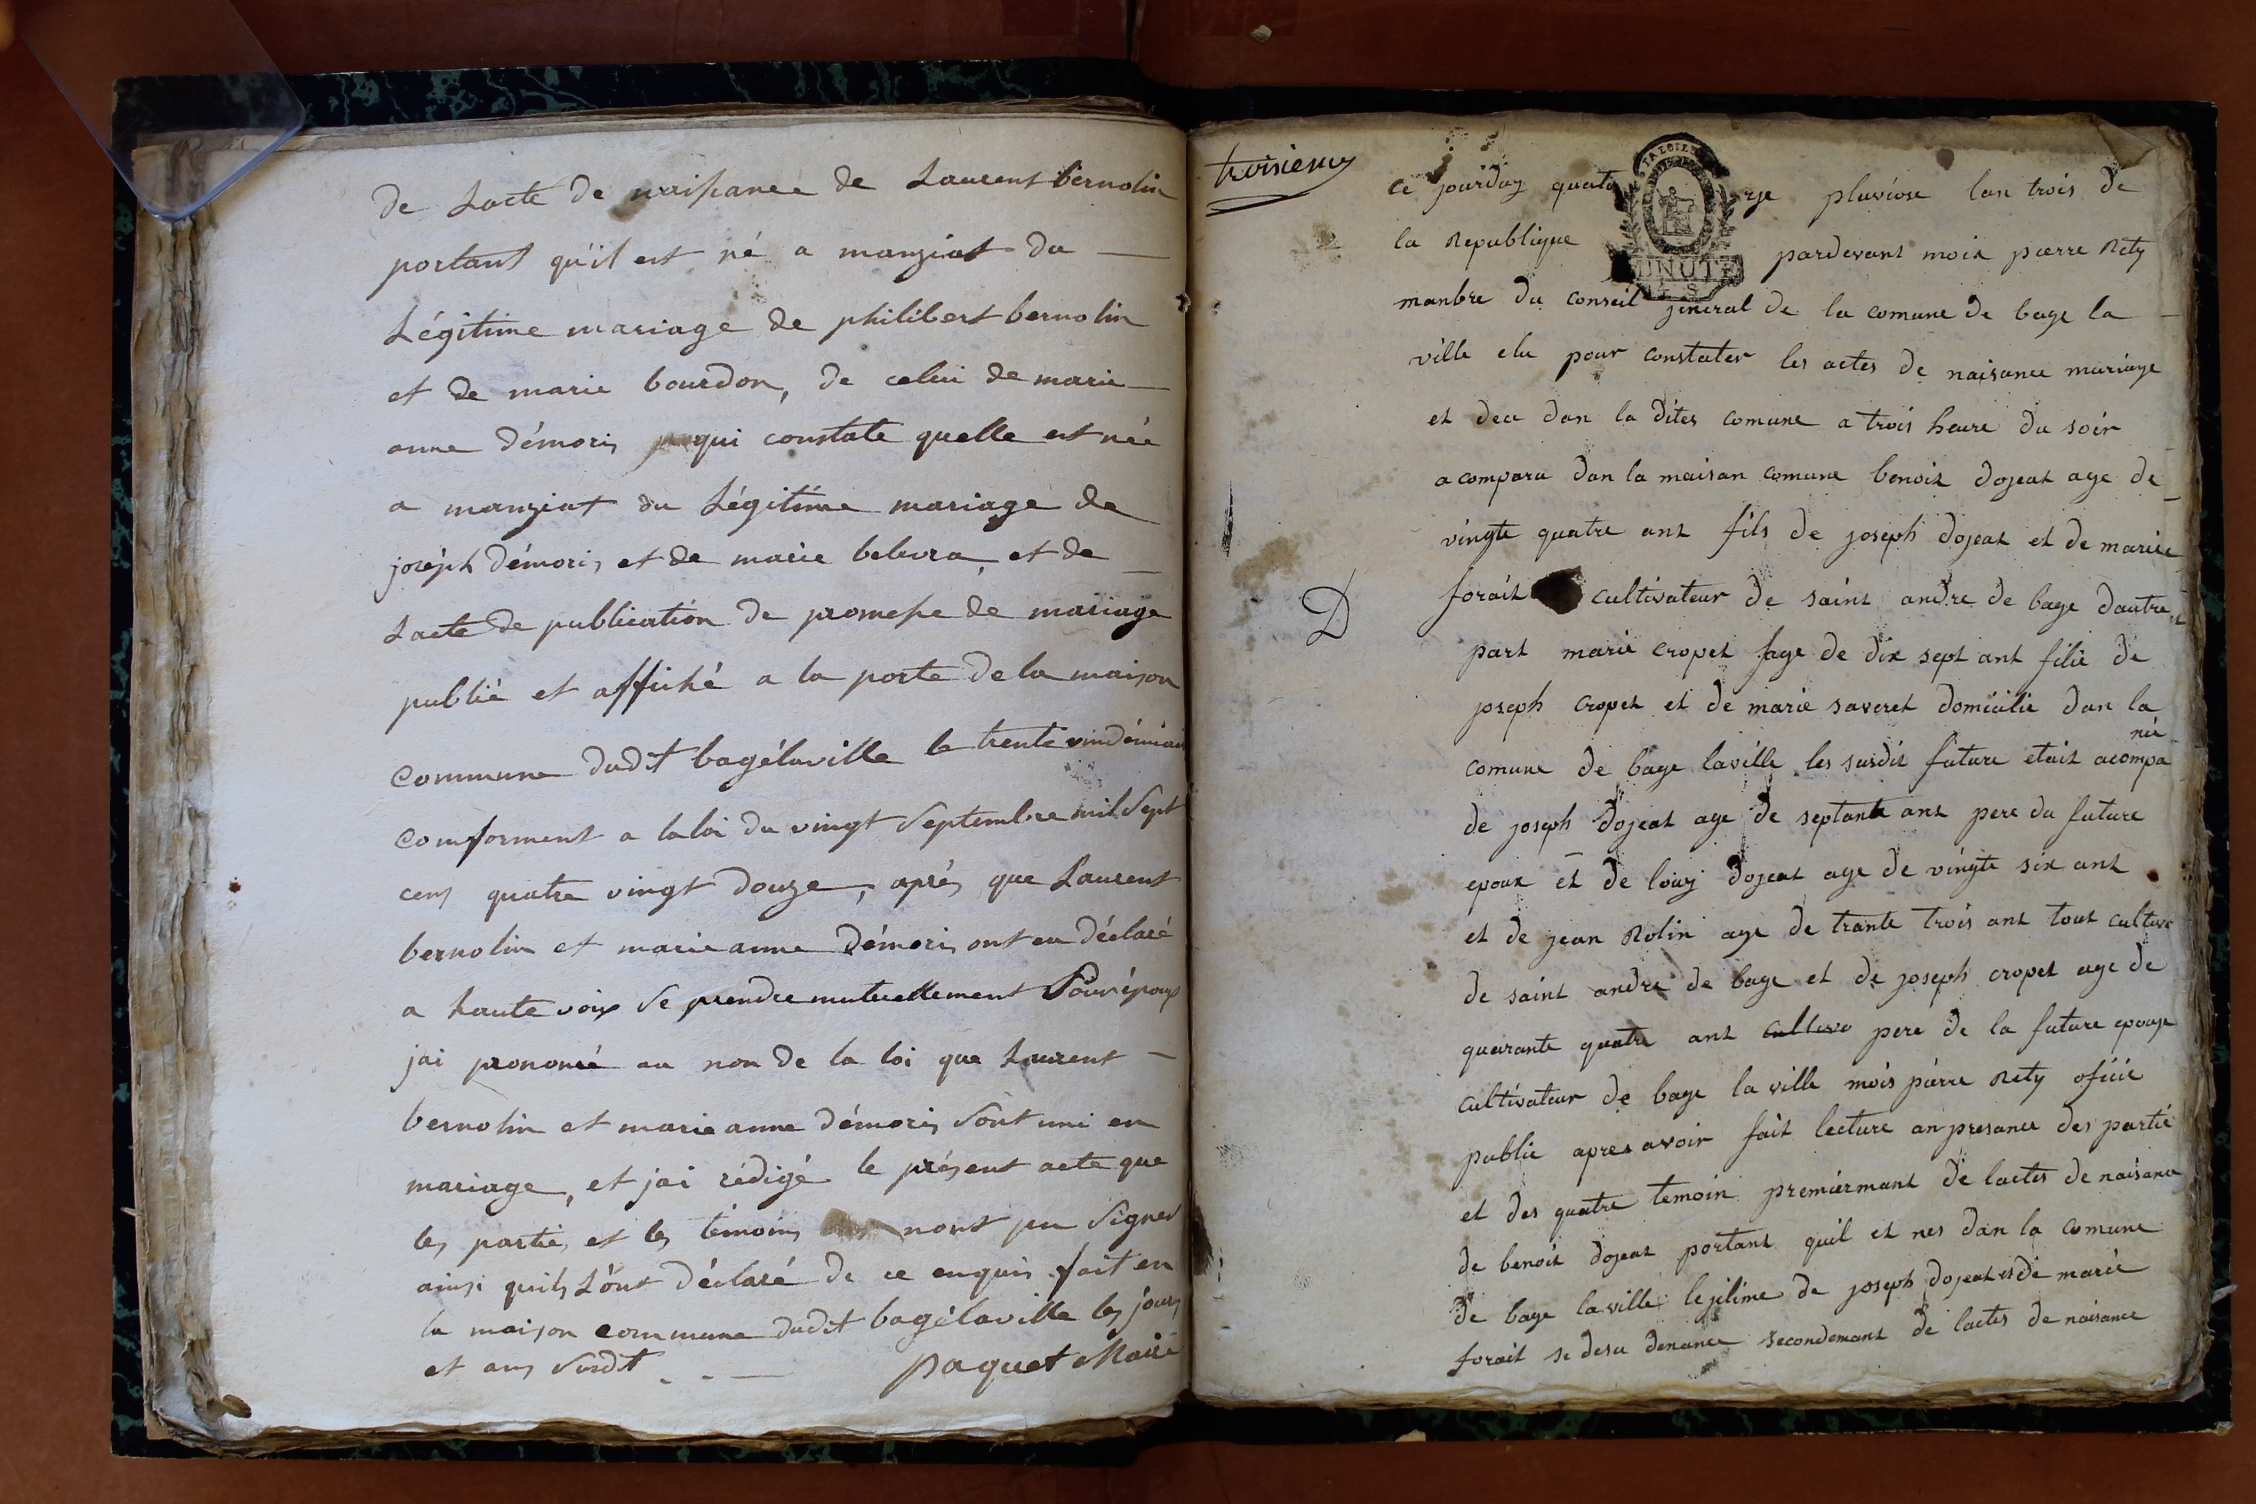 De Lacte De naissance de Laurent bernolin
portant qu'il est né a manziat du
Légitime mariage de philibert bernolin
et de marie bourdon, de celui de marie
anne démoris qui constate quelle est née
a manziat du Légitime mariage de
joséph démoris et de marie belevra et de
Lacte de publication de promesse de mariage
publié et affiché a la porte de la maison
commune dudit bagélaville le trente vindémiair
comforment a la loi du vingt Septembre mil Sept
cens quatre vingt douze, aprés que Laurent
bernolin et marie anne démoris ont eu déclaré
a haute voix Se prendre mutuellement Pour époux
jai prononcé au non de la loi que Laurent
bernolin et marie anne démoris Sont uni en
mariage, et jai rédigé le présent acte que
les partie, et les témoins nont pu Signer
ainsi quils L'ont déclaré de ce enquis fait en
la maison commune dudit bagélaville les jours
et ans Susdit
paquet Maire
troisieme
ce jourduy quatorze pluviose lan trois de
la Republique pardevant moix pierre Rety
manbre du conseil general de la comune de bage la
ville elu pour constater les actes de naisance mariage
et deu dan la dites comune a trois heure du soir
a comparu dan la maison comune benoit dojeat age de
vingte quatre ant fils de joseph dojeat et de mariee
D
forait cultivateur de saint andre de bage dautre
part marie cropet age de dix sept ant filie de
joseph cropet et de marie saveret domicilie dan la
comune de bage laville les susdit future etait acompa
niè
de joseph dojeat age de septante ant pere du future
epoux et de louij dojeat age de vingte six ant
et de jean Rolin age de trante trois ant tout cultiva
de saint andre de bage et de joseph cropet age de
quarante quatre ant cultiva pere de la future epouse
cultivateur de bage la ville mois pierre Rety oficie
public apres avoir fait lecture an presance des partie
et des quatre temoin premiermant de lactes de naisance
de benoit dojeat portant quil et nes dan la comune
de bage laville lejitime de joseph dojeat et de marie
forait si desu denance secondemant de lactes de naisance